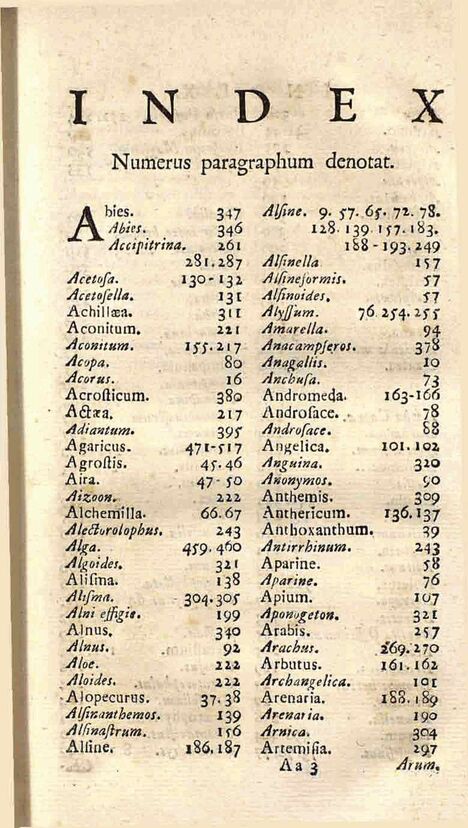 INDEX
Numerus paragraphum denotat.
Abies. 347
Abies. 346
Accipitrina. 261
281.287
Acetoſa. 130-132
Acetoſella. 131
Achillæa. 311
Aconitum. 221
Aconitum. 155.217
Acopa. 80
Acorus. 16
Acroſticum. 380
Actæa. 217
Adiantum. 395
Agaricus. 471-517
Agroſtis. 45.46
Aira. 47-50
Aizoon. 222
Alchemilla. 66.67
Alectorolophus. 243
Alga. 459.460
Algoides. 321
Aliſma. 138
Aliſma. 304.305
Alni effigie. 199
Alnus. 340
Alnus. 92
Aloe. 222
Aloides. 222
Alopecurus. 37.38
Alſinanthemos. 139
Alſinaſtrum. 156
Alſine. 186.187
Alſine. 9. 57. 65. 72. 78.
128. 139. 157. 183.
188-193.249
Alſinella 157
Alſineformis. 57
Alſinoides. 57
Alyſſum. 76.254.255
Amarella. 94
Anacampſeros. 378
Anagallis. 10
Anchuſa. 73
Andromeda. 163-166
Androſace. 78
Androſace. 88
Angelica. 101.102
Anguina. 320
Anonymos. 90
Anthemis. 309
Anthericum. 136.137
Anthoxanthum. 39
Antirrhinum. 243
Aparine. 58
Aparine. 76
Apium. 107
Aponogeton. 321
Arabis. 257
Arachus. 269.270
Arbutus. 161.162
Archangelica. 101
Arenaria. 188.189
Arenaria. 190
Arnica. 304
Artemiſia. 297
Aa 3 Arum.